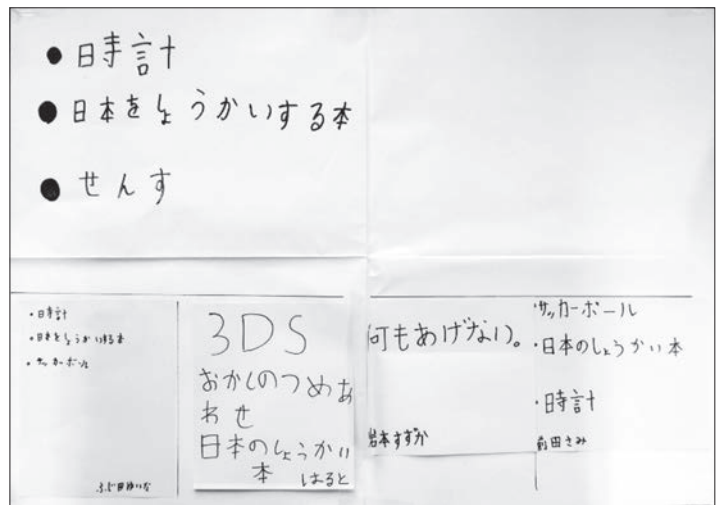 ● 日時計
● 日本をしょうかいする本
● せんす
・日時計
・日本をしょうかいする本
・サッカーボール
ふじ田ゆいな
3DS
おかしのつめあ
わせ
日本のしょうかい
本
はると
何もあげない。
岩本すずか
・サッカーボール
・日本のしょうかい本
・日時計
前田さみ